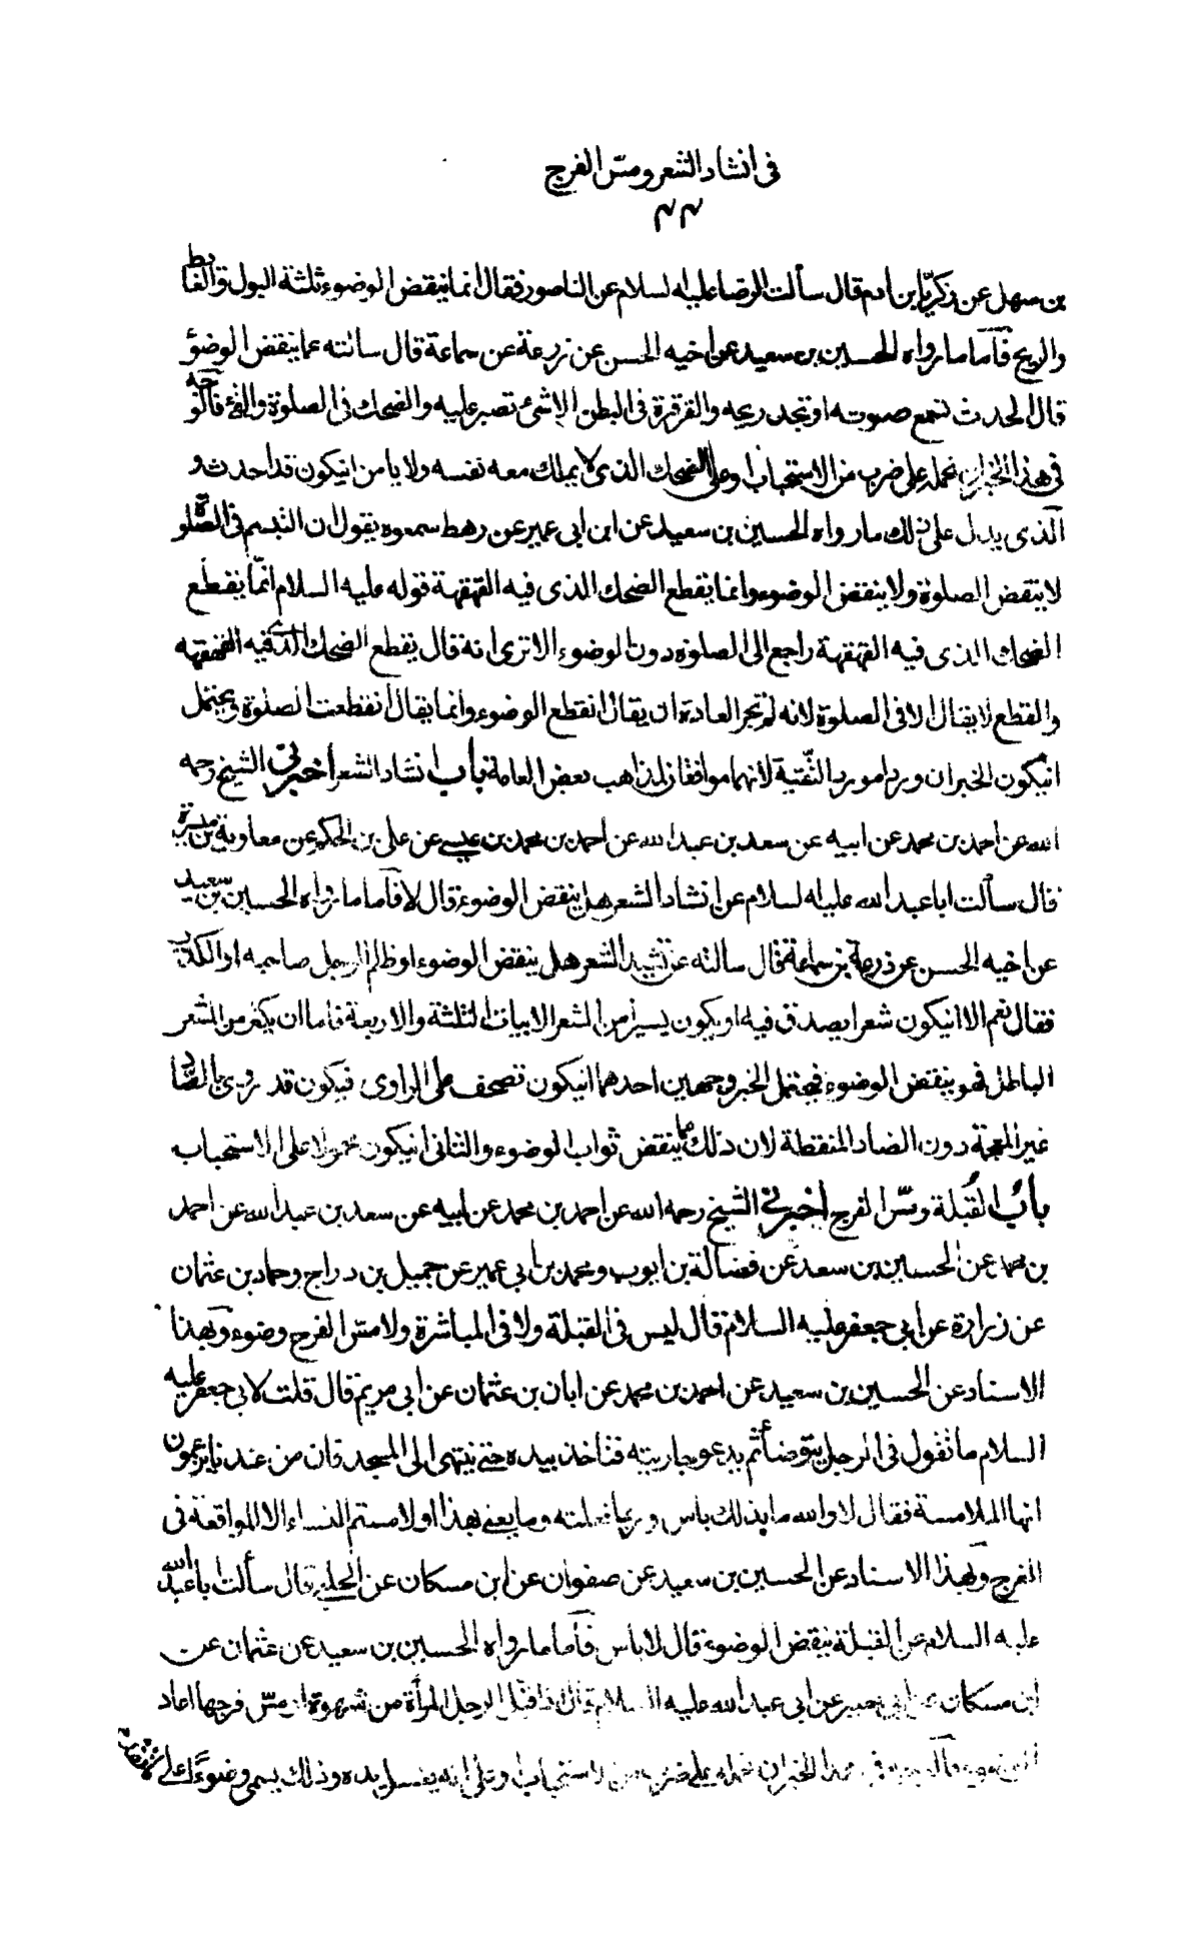 في انشاد الشعر ومسّ الفرج
٤٤
بن سهل عن زكريّا بن ادم قال سألت الرضا عليه السلام عن الناصور فقال انما ينقض الوضوء ثلثة البول والغايط
والريح فأما ما رواه الحسين بن سعيد عن اخيه الحسن عن زرعة عن سماعة قال سالته عما ينقض الوضوء
قال الحدث تسمع صوته او تجد ريحه والقرقرة في البطن الا شئ تصبر عليه والضحك في الصلوة والقئ فالوجه
في هذا الخبر ان نحمله على ضرب من الاستحباب او على الضحك الذي لا يملك معه نفسه ولا يامن ان يكون قد احدث و
الّذي يدل على ذلك ما رواه الحسين بن سعيد عن ابن ابي عمير عن رهط سمعوه يقول ان التبسم في الصّلوة
لا ينقض الصلوة ولا ينقض الوضوء وانما يقطع الضحك الذي فيه القهقهة قوله عليه السلام انّما يقطع
الضحك الذي فيه القهقهة راجع الى الصلوة دون الوضوء الا ترى انه قال يقطع الضحك الذي فيه القهقهه
والقطع لا يقال الا في الصلوة لانه لم تجر العادة ان يقال انقطع الوضوء وانما يقال انقطعت الصلوة ويحتمل
ان يكون الخبران وردا مورد التّقية لانهما موافقان لمذاهب بعض العامة باب انشاد الشعر اخبرني الشيخ رحمه
الله عن احمد بن محمد عن ابيه عن سعد بن عبد الله عن احمد بن محمد بن عيسى عن على بن الحكم عن معاوية بن ميسرة
قال سألت ابا عبد الله عليه السلام عن انشاد الشعر هل ينقض الوضوء قال لا فأما ما رواه الحسين بن سعيد
عن اخيه الحسن عن زرعة بن سماعة قال سالته عن نشيد الشعر هل ينقض الوضوء او ظلم الرجل صاحبه او الكذب
فقال نعم الا ان يكون شعرا يصدق فيه او يكون يسيرا من الشعر الابيات الثلثة والاربعة فاما ان يكثر من الشعر
الباطل فهو ينقض الوضوء فيحتمل الخبر وجهين احدهما ان يكون تصحف على الراوى فيكون قد روى بالصّاد
غير المعجمة دون الضاد المنقطة لان ذلك مما ينقض ثواب الوضوء والثانى ان يكون محمولا على الاستحباب
باب القُبلة ومسّ الفرج اخبرني الشيخ رحمه الله عن احمد بن محمد عن ابيه عن سعد بن عبد الله عن احمد
بن محمد عن الحسين بن سعد عن فضالة بن ايوب ومحمد بن ابي عمير عن جميل بن دراج وحماد بن عثمان
عن زرارة عن ابي جعفر عليه السلام قال ليس في القبلة ولا في المباشرة ولا مسّ الفرج وضوء وبهذا
الاسناد عن الحسين بن سعيد عن احمد بن محمد عن ابان بن عثمان عن ابي مريم قال قلت لابي جعفر عليه
السلام ما تقول في الرجل يتوضأ ثم يدعو جاريته فتاخذ بيده حتى ينتهى الى المسجد فان من عندنا يزعمون
انها الملامسة فقال لا والله ما بذلك باس وربما فعلته وما يعنى بهذا او لامستم النساء الا المواقعة في
الفرج وبهذا الاسناد عن الحسين بن سعيد عن صفوان عن ابن مسكان عن الحلبي قال سألت ابا عبد الله
عليه السلام عن القبلة ينقض الوضوء قال لا باس فأما ما رواه الحسين بن سعيد عن عثمان عن
ابن مسكان عن ابي بصير عن ابي عبد الله عليه السلام قال اذا قبّل الرجل المرأة من شهوة او مسّ فرجها اعاد
الوضوء فالوجه في هذا الخبر ان نحمله على ضرب من الاستحباب او على انه يغسل يده وذلك يسمى وضوءًا على